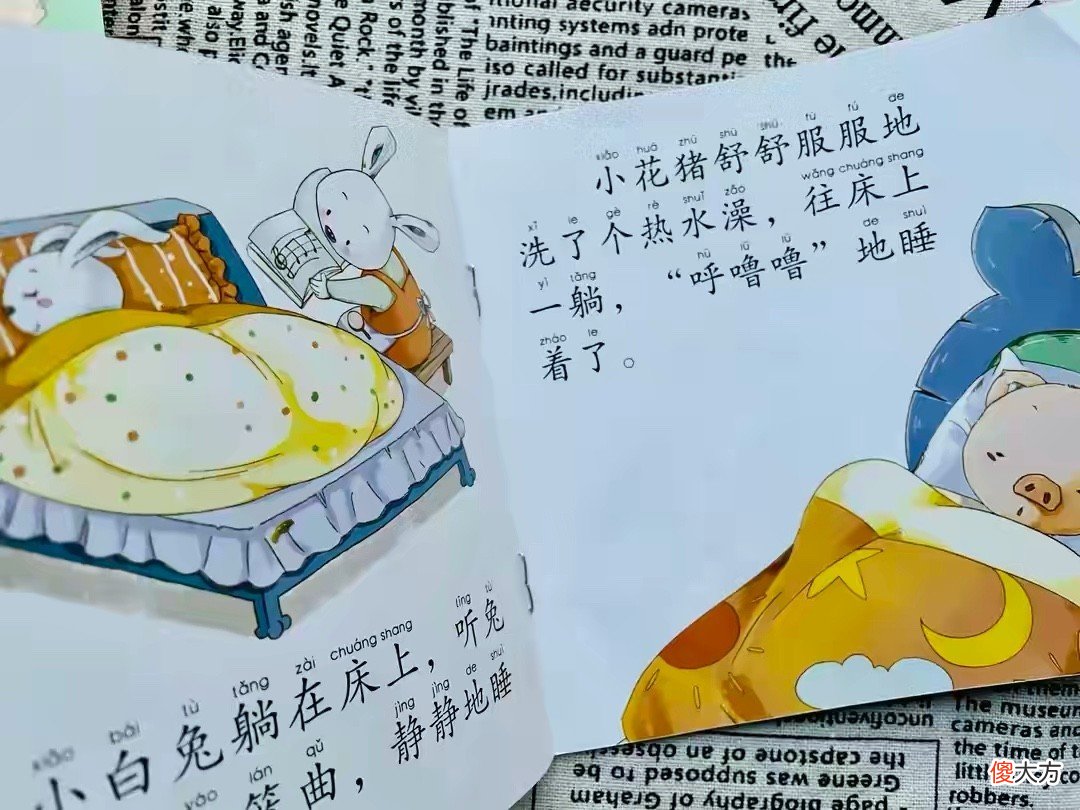 novels.It
Quiet A
Rock."
of the life
month by
of "The Life of
aecurity cameras
systems adn
and a guard
called for
the
xiǎo huā zhū shū shū fú fú de
小花猪舒舒服服地
xǐ le gè rè shuǐ zǎo wǎng chuáng shang
洗了个热水澡，往床上
yì tǎng hū lū lū de shuì
一躺，“呼噜噜”地睡
zháo le
着了。
xiǎo bái tù tǎng zài chuáng shang tīng tù
小白兔躺在床上，听兔
yáo lán qǔ jìng jìng de shuì
曲，静静地睡
The museum
cameras and
the time of
robbers.
page biography of Graham
Greene was supposed to be
the capstone of an
傻大方